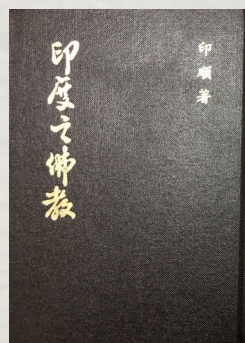 印順著
印度之佛教